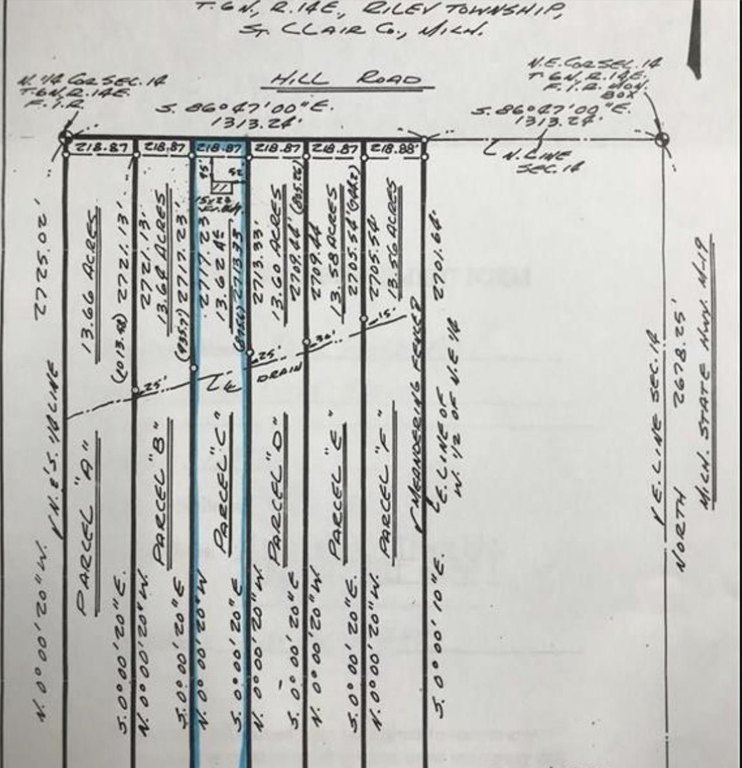 T. 6 N, R. 14 E, RILEY TOWNSHIP,
ST. CLAIR CO., MICH.
N. 1/4 COR SEC. 14
T. 6 N, R. 14 E.
F.I.R.
HILL ROAD
N.E. COR SEC. 14
T. 6 N, R. 14 E,
F.I.R. MON.
BOX
S. 86° 47' 00" E.
1313.24'
S. 86° 47' 00" E.
1313.24'
218.87
218.87
218.87
218.87
218.87
218.88'
N. LINE
SEC. 14
N. 0° 00' 20" W.
N. & S. 1/4 LINE
2725.02'
PARCEL "A"
13.66 ACRES
S. 0° 00' 20" E.
(1013.48)
2721.13'
N. 0° 00' 20" W.
2721.13'
PARCEL "B"
13.64 ACRES
S. 0° 00' 20" E
2717.23'
N. 0° 00' 20" W
2717.23
PARCEL "C"
13.62
95'
52
S. 0° 00' 20" E
2713.33'
N. 0° 00' 20" W.
2713.33'
PARCEL "D"
13.60 ACRES
S. 0° 00' 20" E
2709.44'
N. 0° 00' 20" W.
2709.44
PARCEL "E"
13.58 ACRES
S. 0° 00' 20" E.
2705.54'
N. 0° 00' 20" W.
2705.54'
PARCEL "F"
13.56 ACRES
MEANDERING FENCE
S. 0° 00' 10" E.
2701.64'
E. LINE OF
W. 1/2 OF N.E. 1/4
25'
25'
DRAIN
30'
15'
E. LINE SEC. 14
NORTH 2678.25'
MICH. STATE HWY. M-19